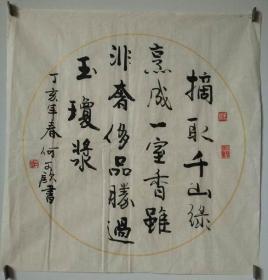 摘取千山綠
烹成一室香雖
非奢侈品勝過
玉瓊漿
丁亥年春何可欣書